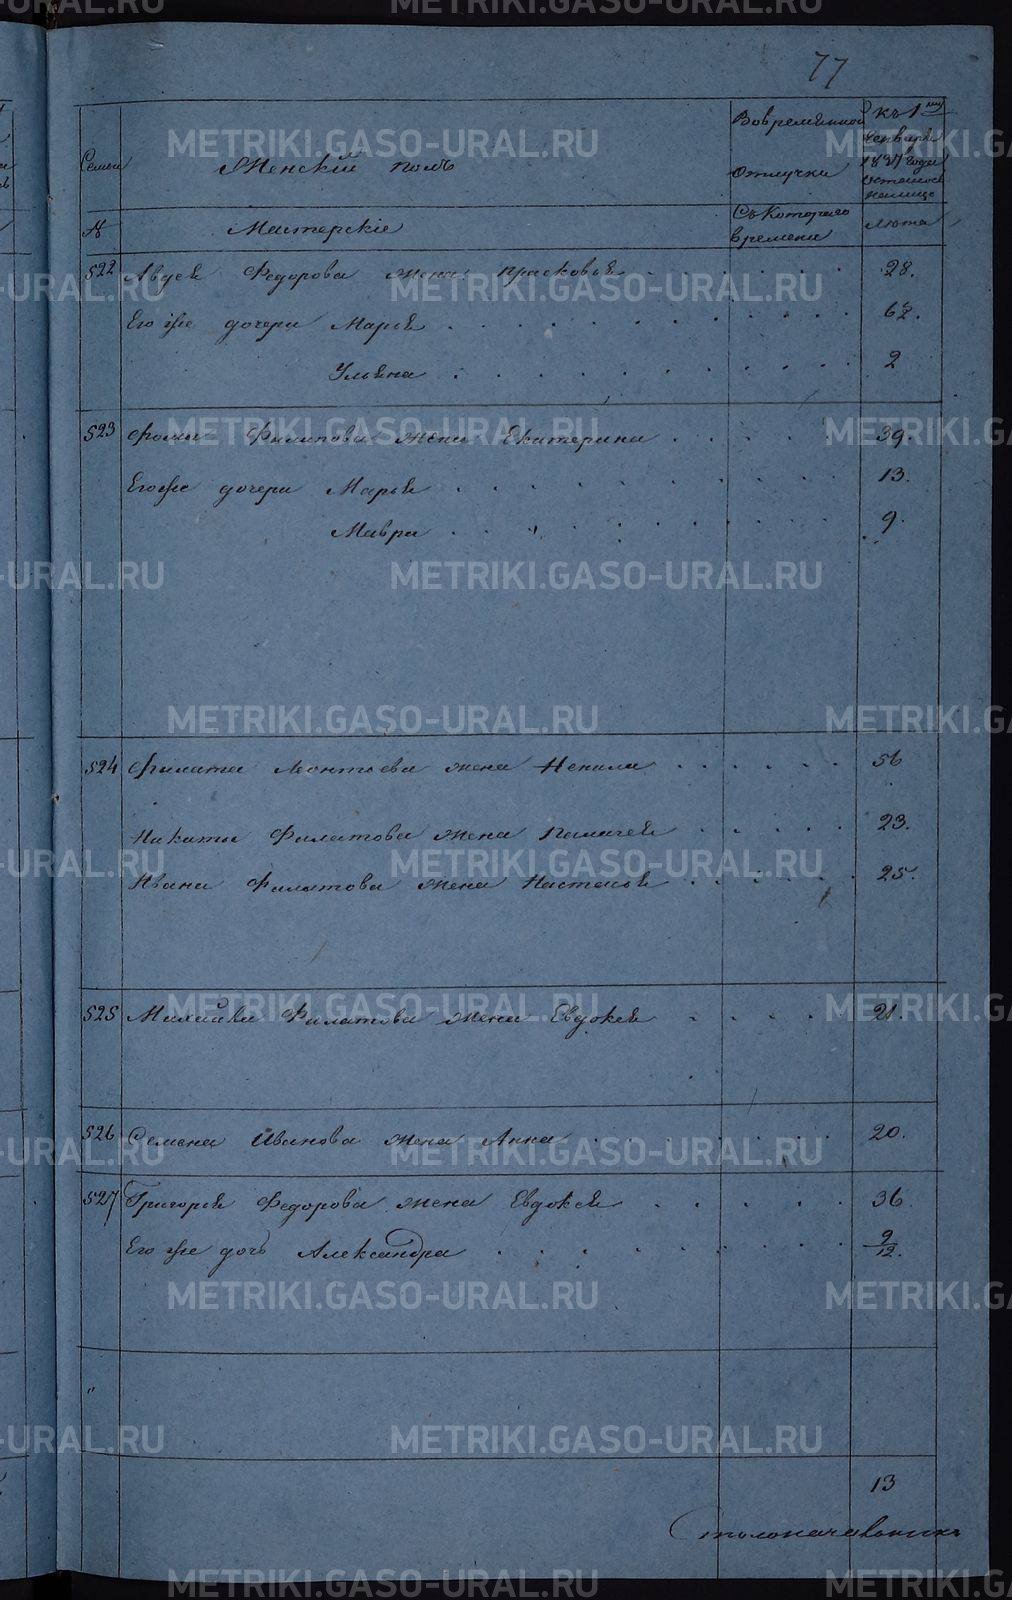 77
Семьи
Женскій полъ
Вовременной
отлучки
къ 1му
Генваря
1827 года
осталось
налицо
№
Мастерскіе
Съ котораго
времени
лѣта
522 Авдея Федорова жена прасковья 28.
Его же дочери Марья
Ульяна 2
523 Фомы Филипова жена Екатерина 39.
Его же дочери Марья 13.
Мавра 9.
524 Филата Леонтьева жена Ненила 56
Никиты Филатова жена Палагея 23.
Ивана Филатова жена Настасья 25.
525 Михайла Филатова жена Евдокея 21.
526 Семена Иванова жена Анна 20.
527 Григорья Федорова жена Евдокея 36.
Его же дочь Александра 9/12.
"
13
Столоначальникъ
METRIKI.GASO-URAL.RU